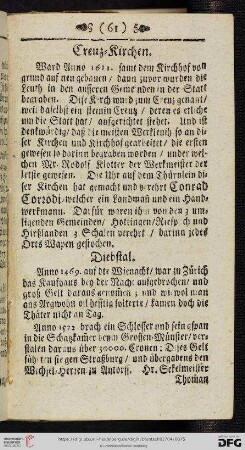 ( 61 )
Creutz-Kirchen.
Ward Anno 1611. samt dem Kirchhof von
grund auf neu gebauen / dann zuvor wurden die
Leuth in den ausseren Gemeinden in der Statt
begraben. Dise Kirch wurd zum Creutz genant /
weil daselbst ein steinen Creutz / deren es etliche
um die Statt hat / aufgerichtet stehet. Und ist
denkwürdig / daß die meisten Werkleuth so an di-
ser Kirchen und Kirchhof gearbeitet / die ersten
gewesen so darinn begraben worden / under wel-
chen Mr. Rodolf Stolter der Werkmeister der
letste gewesen. Die Uhr auf dem Thürnlein di-
ser Kirchen hat gemacht und verehrt Conrad
Corrodi, welcher ein Landmañ und ein Hand-
werkmann. Darfür waren ihm von den 3 um-
ligenden Gemeinden / Hottingen / Riespach und
Hirßlanden 3 Schalen verehrt / darinn jedes
Orts Wapen gestochen.
Diebstal.
Anno 1469. auf die Wienacht / war zu Zürich
das Kaufhaus bey der Nacht aufgebrochen / und
groß Gelt daraus genommen ; und wiewol man
aus Argwohn vil heftig folterte / kamen doch die
Thäter nicht an Tag.
Anno 1572 brach ein Schlosser und sein gspan
in die Schatzkamer beym Grossen-Münster / ver-
stalen daraus über 30000. Cronen ; Dises Gelt
führten sie gen Straßburg / und übergabens den
Wechsel-Herren zu Antorff. Hr. Sekelmeister
Thoman
DFG